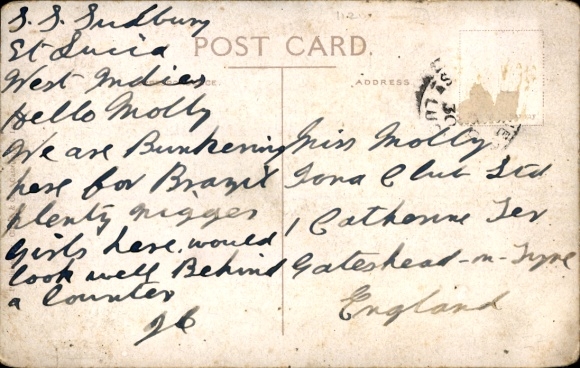 S. S. Sudbury
St Lucia
West Indies
POST CARD.
ADDRESS
Hello Molly
We are Bunkering
here for Brazil
plenty nigger
girls here. would
look well Behind
a Counter
JC
Miss Molly
Iona Club Ltd
1 Catherine Ter
Gateshead-n-Tyne
England